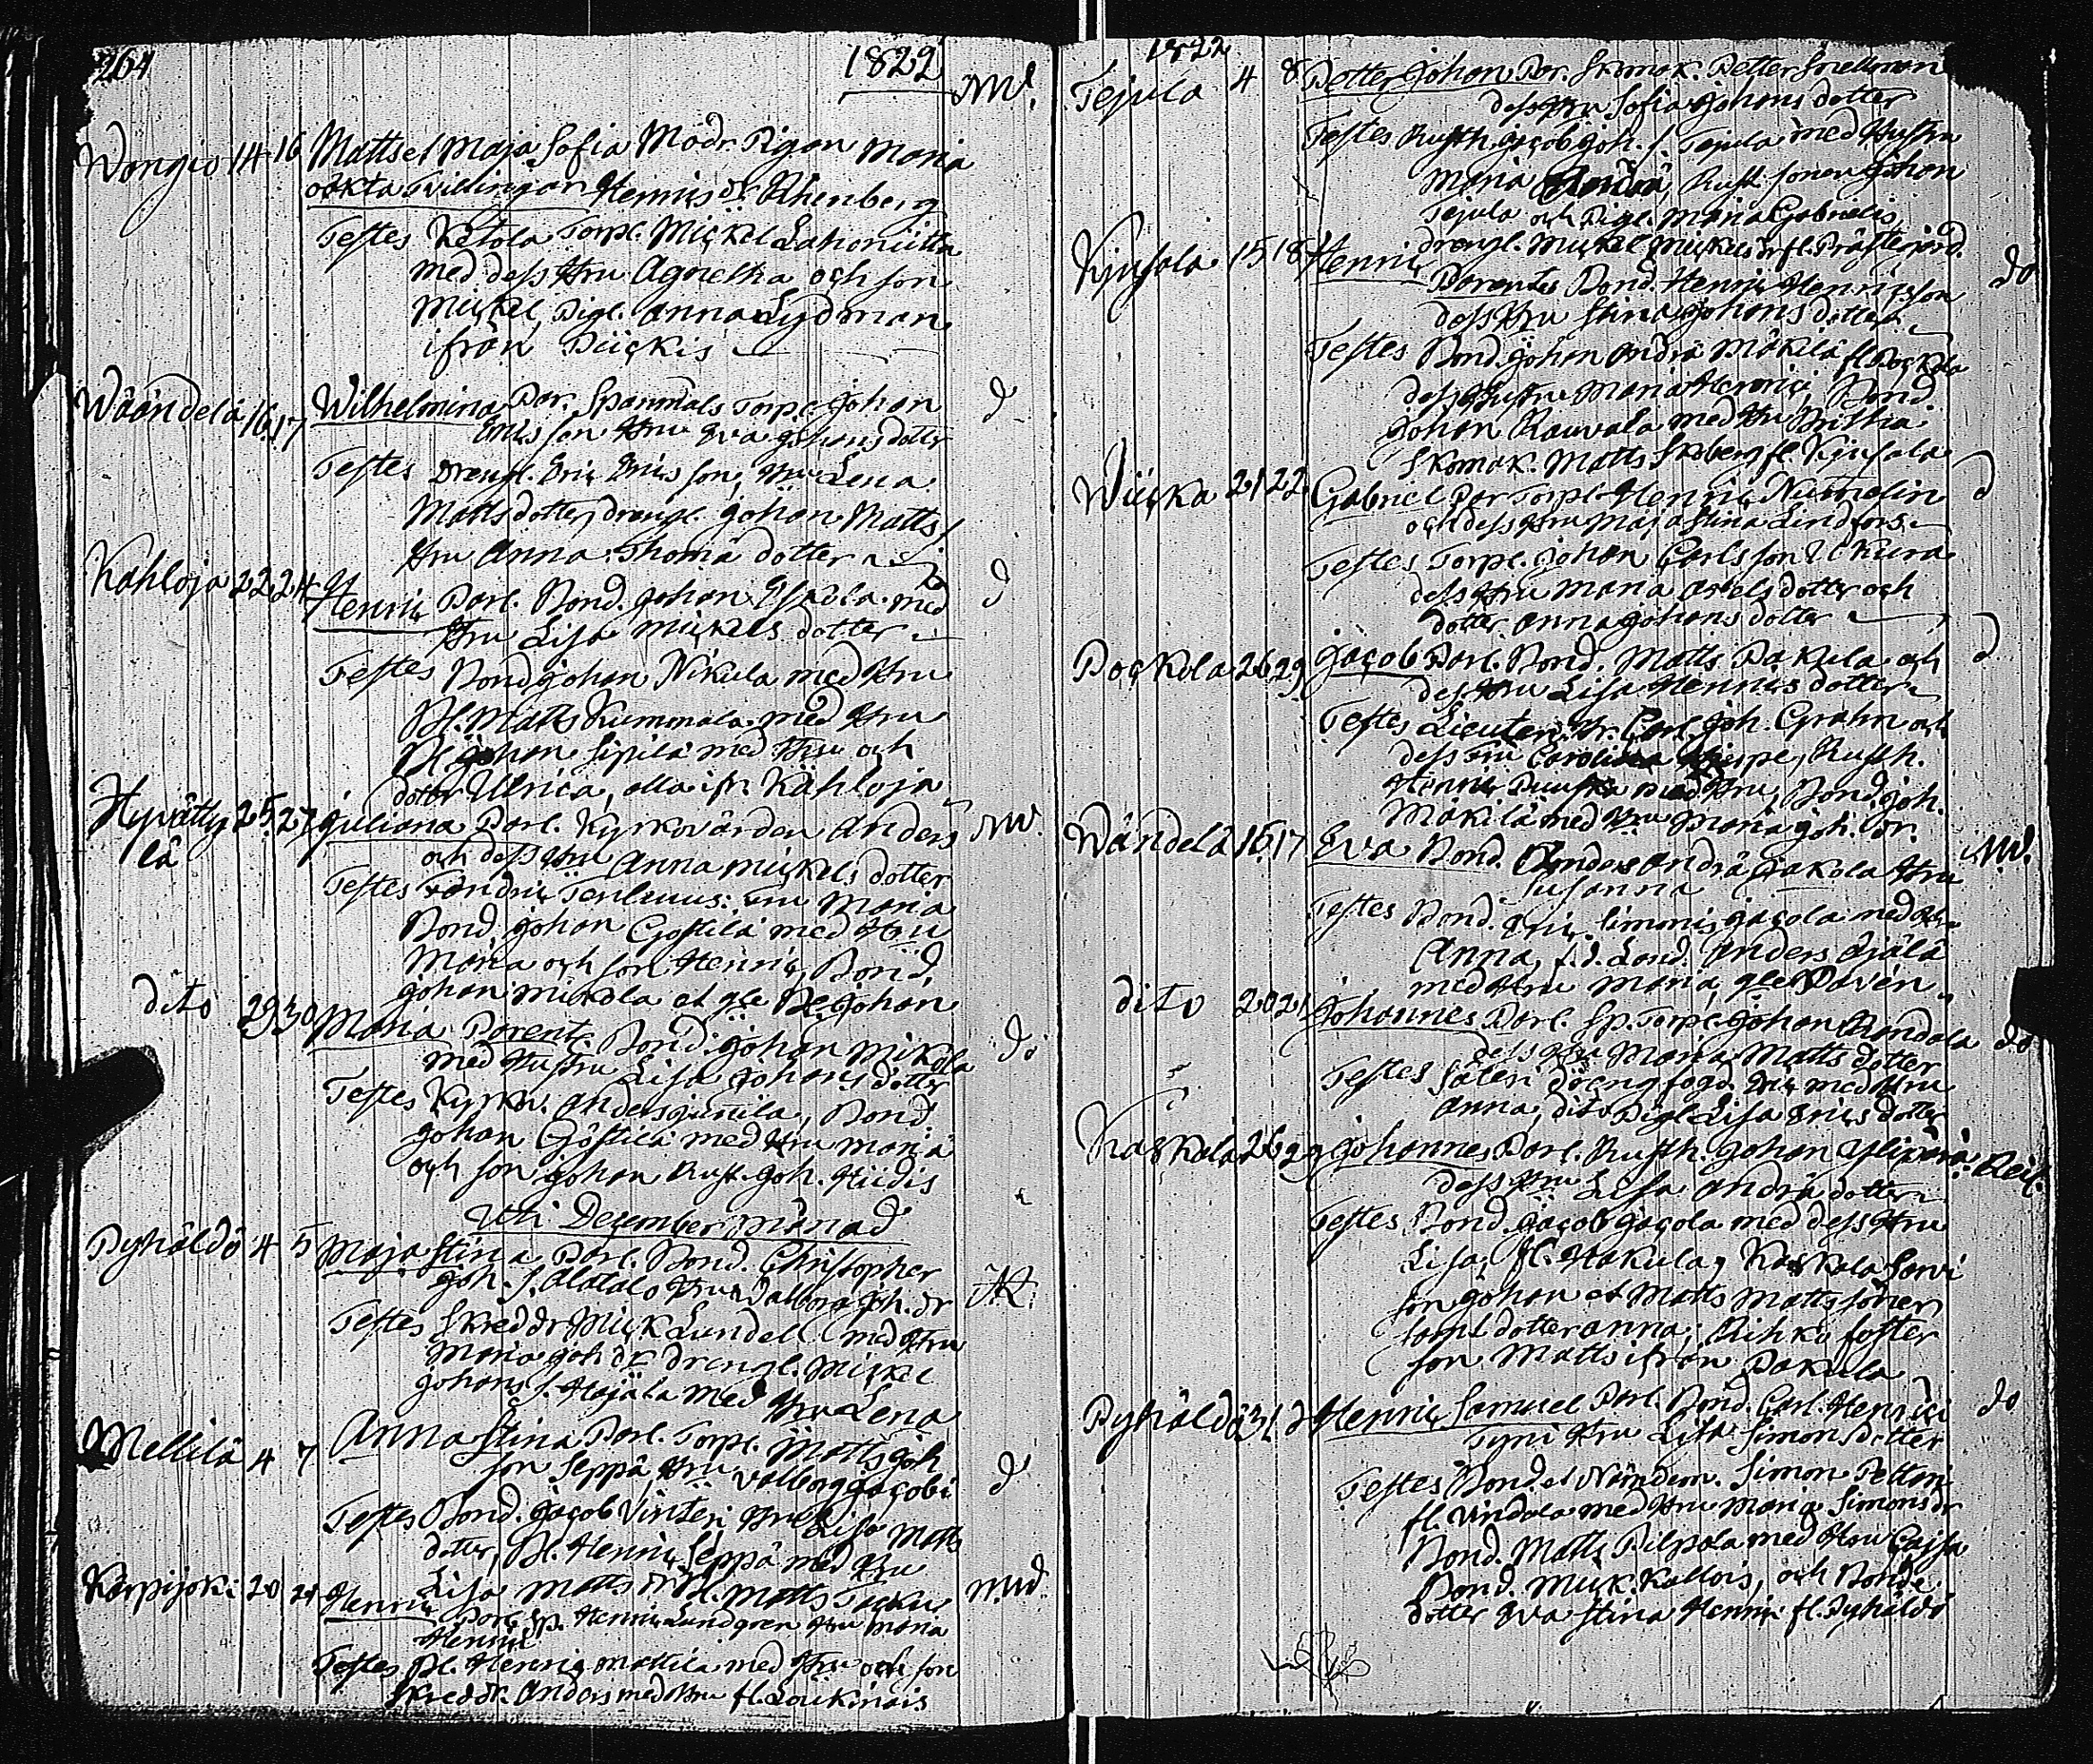 264
1822
MW.
Wongio 14 16 Matts et Maja Sofia Modr. Pigan Maria
oäkta Tvillingar Henrics dr. Rhenberg
Testes Ketola Torpl. Mickel Lahoniitta
med dess Hru Agnetha och son
Mickel, Pigl. Anna Lydman
ifrån Pückis
Wäändelä 16 17 Wilhelmina Par. Spanmåls Torpl. Johan d
Erics son Hru Eva Johans dotter
Testes Drengl. Eric Erics son, Hru Lena
Mattsdotter, drengl. Johan Matts s.
Hru Anna Thomä dotter
Kahloja 22 24 Henric Parl. Bond. Johan Eskola med d
Hru Lisa Mickels dotter
Testes Bond Johan Nikula med Hru
Bl. Matts Kummala med Hru
Bl. Johan Sipilä med Hru och
dotter Ulrica, alla ifr. Kahloja
Hyvätty 25 27 Juliana Parl. Kyrkovärden Anders MW.
lä
och dess Hru Anna Mickels dotter
Testes Hru Maria
Bond Johan Gostilä med Hru
Maria och son Henric, Bond.
Johan Mikola et gle Bl. Johan
dito 29 30 Maria Parent. Bond. Johan Mikola do
med Hustru Lisa Johans dotter
Testes Kyrkv. Anders Junila, Bond.
Johan Göstilä med Hru Maria
och son Johan Rust. Joh. Hiidis
Uti December Månad
Pyhäldö 4 5 Maja Stina Parl. Bond. Christopher
Joh. s. Alatalo Hru Valborg Joh. dr
Testes Skreddr Mick Lundell med Hru
Maria Joh dr drengl. Mickel
Johans s. Hojäla med Hru Lena
Mellilä 4 7 Anna Stina Parl. Torpl. Matts Joh d
son Seppä, Hru Valborg Jacobi
Testes Bond. Jacob Vinteri Hru Lisa Matts
dotter, Bl. Henric Seppä med Hru
Lisa Matts dr Bl. Matts
Karpijoki 20 21 Henric MW.
Parl. Sp. Henric Lundgren Hru Maria
Henrici
Testes Bl. Henric Mattila med Hru och son
Skreddr. Anders med Hru fl. Loukinais
1822
Tejula 4 8 Petter Johan Par. Skomak. Petter Snellman
dess Hru Sofia Johans dotter
Testes Rusth. Jacob Joh. s. Tejula med Hustru
Maria Andrä, Rusth. sonen Johan
Tejula och Pigl. Maria Gabrielis,
drengl. Mickel Mickels dr fl. Prästgård.
Kjusala 15 18 Henric do
Parentes Bond. Henric Henricsson
dess Hru Stina Johans dotter
Testes Bond. Johan Andrä Mäkilä fl. Pockola
dess Hustru Maria Henrici, Bond
Johan Rauvala med Hru Britha
Skomak. Matts Skoberg fl. Kjusala
Wiicka 21 22 Gabriel Par Torpl. Henric Numelin d
och dess Hru Maja Stina Lindfors
Testes Torpl. Johan Carlsson
dess Hru Maria Axels dotter och
dotter Anna Johans dotter
Pockola 26 29 Jacob Parl. Bond. Matts Pakula och d
dess Hru Lisa Henrics dotter
Testes Lieuten. Hr. Carl Joh. Grahn och
dess Fru Carolina, Rusth.
Henric med Hru, Bond. Joh.
Mäkilä med Hru Maria Joh. dr.
Wändelä 15 17 Eva Bond. Anders Andrä Jakola Hru MW.
Susanna
Testes Bond. Eric Simonis Jacola med Hru
Anna, f.d. Lond. Anders Ojälä
med Hru Maria, gle Pavén
dito 20 21 Johannes Parl. Sp. Torpl. Johan Randala do
dess Hru Maria Matts dotter
Testes Säteri drengfogd. Eric med Hru
Anna, dito Pigl. Lisa Erics dotter
Kaskola 26 29 Johannes Parl. Rusth. Johan Ylipärä Reil.
dess Hru Lisa Andrä dotter
Testes Bond. Jacob Jacola med dess Hru
Lisa, fl. Hakula, Kaskola Sorvi
son Johan et Matts Matts söner
samt dotter Anna; Rihko foster
son Matts ifrån Pakula
Pyhäldö 31 d Henric Samuel Parl. Bond. Carl Henrici do
Tyni Hru Lisa Simons dotter
Testes Bond. et Nämdem. Simon Pettari
fl. Vindala med Hru Maria Simons dr
Bond. Matts Pilpola med Hru Cajsa
Bond. Mick. Kallois, och Bonde
dotter Eva Stina Henric fl. Pyhäldö